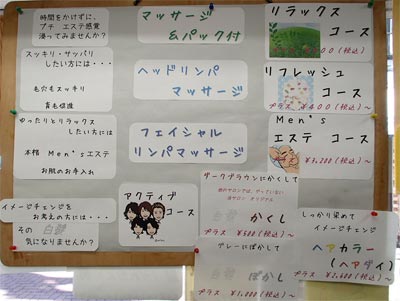 時間をかけずに、
プチ エステ感覚
浸ってみませんか?
マッサージ
&パック付
リラックス
コース
(税込)
スッキリ・サッパリ
したい方には・・・
毛穴もスッキリ
育毛促進
ヘッドリンパ
マッサージ
リフレッシュ
コース
プラス
(税込)～
ゆったりとリラックス
したい方には
本格 Men'sエステ
お肌のお手入れ
フェイシャル
リンパマッサージ
Men's
エステ コース
¥3,200(税込)～
イメージチェンジを
お考えの方には・・・
その 白髪
気になりませんか?
アクティブ
コース
ダークブラウンにかくして
他のサロンでは、やっていない
当サロン オリジナル
白髪 かくし
プラス ¥500(税込)～
グレーにぼかして
白髪 ぼかし
プラス ¥1,000(税込)～
しっかり染めて
イメージチェンジ
ヘアカラー
(ヘアダイ)
プラス ¥2,600(税込)～